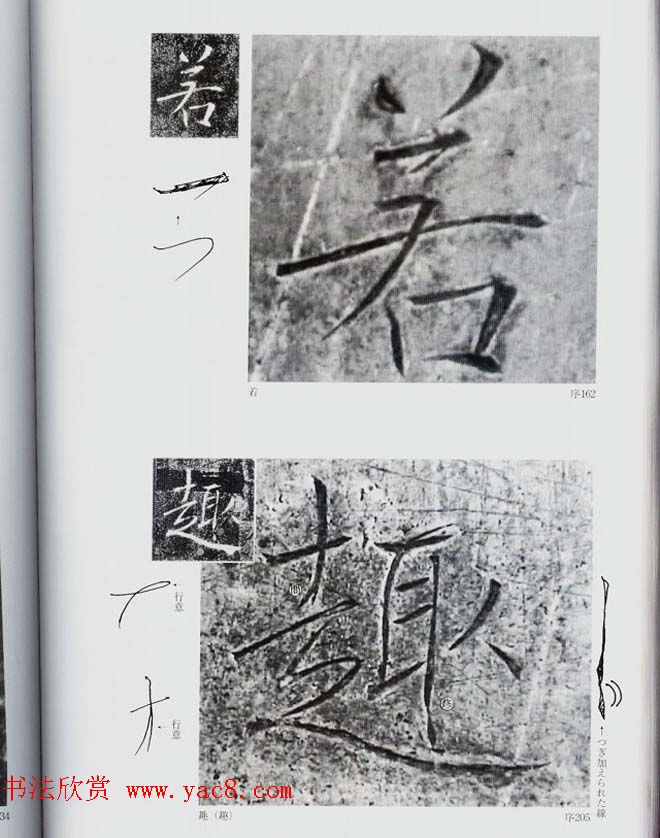 若
若
若
序162
趣
趣
行意
行意
←つぎ加えられた線
趣(趣)
序205
书法欣赏 www.yac8.com
34